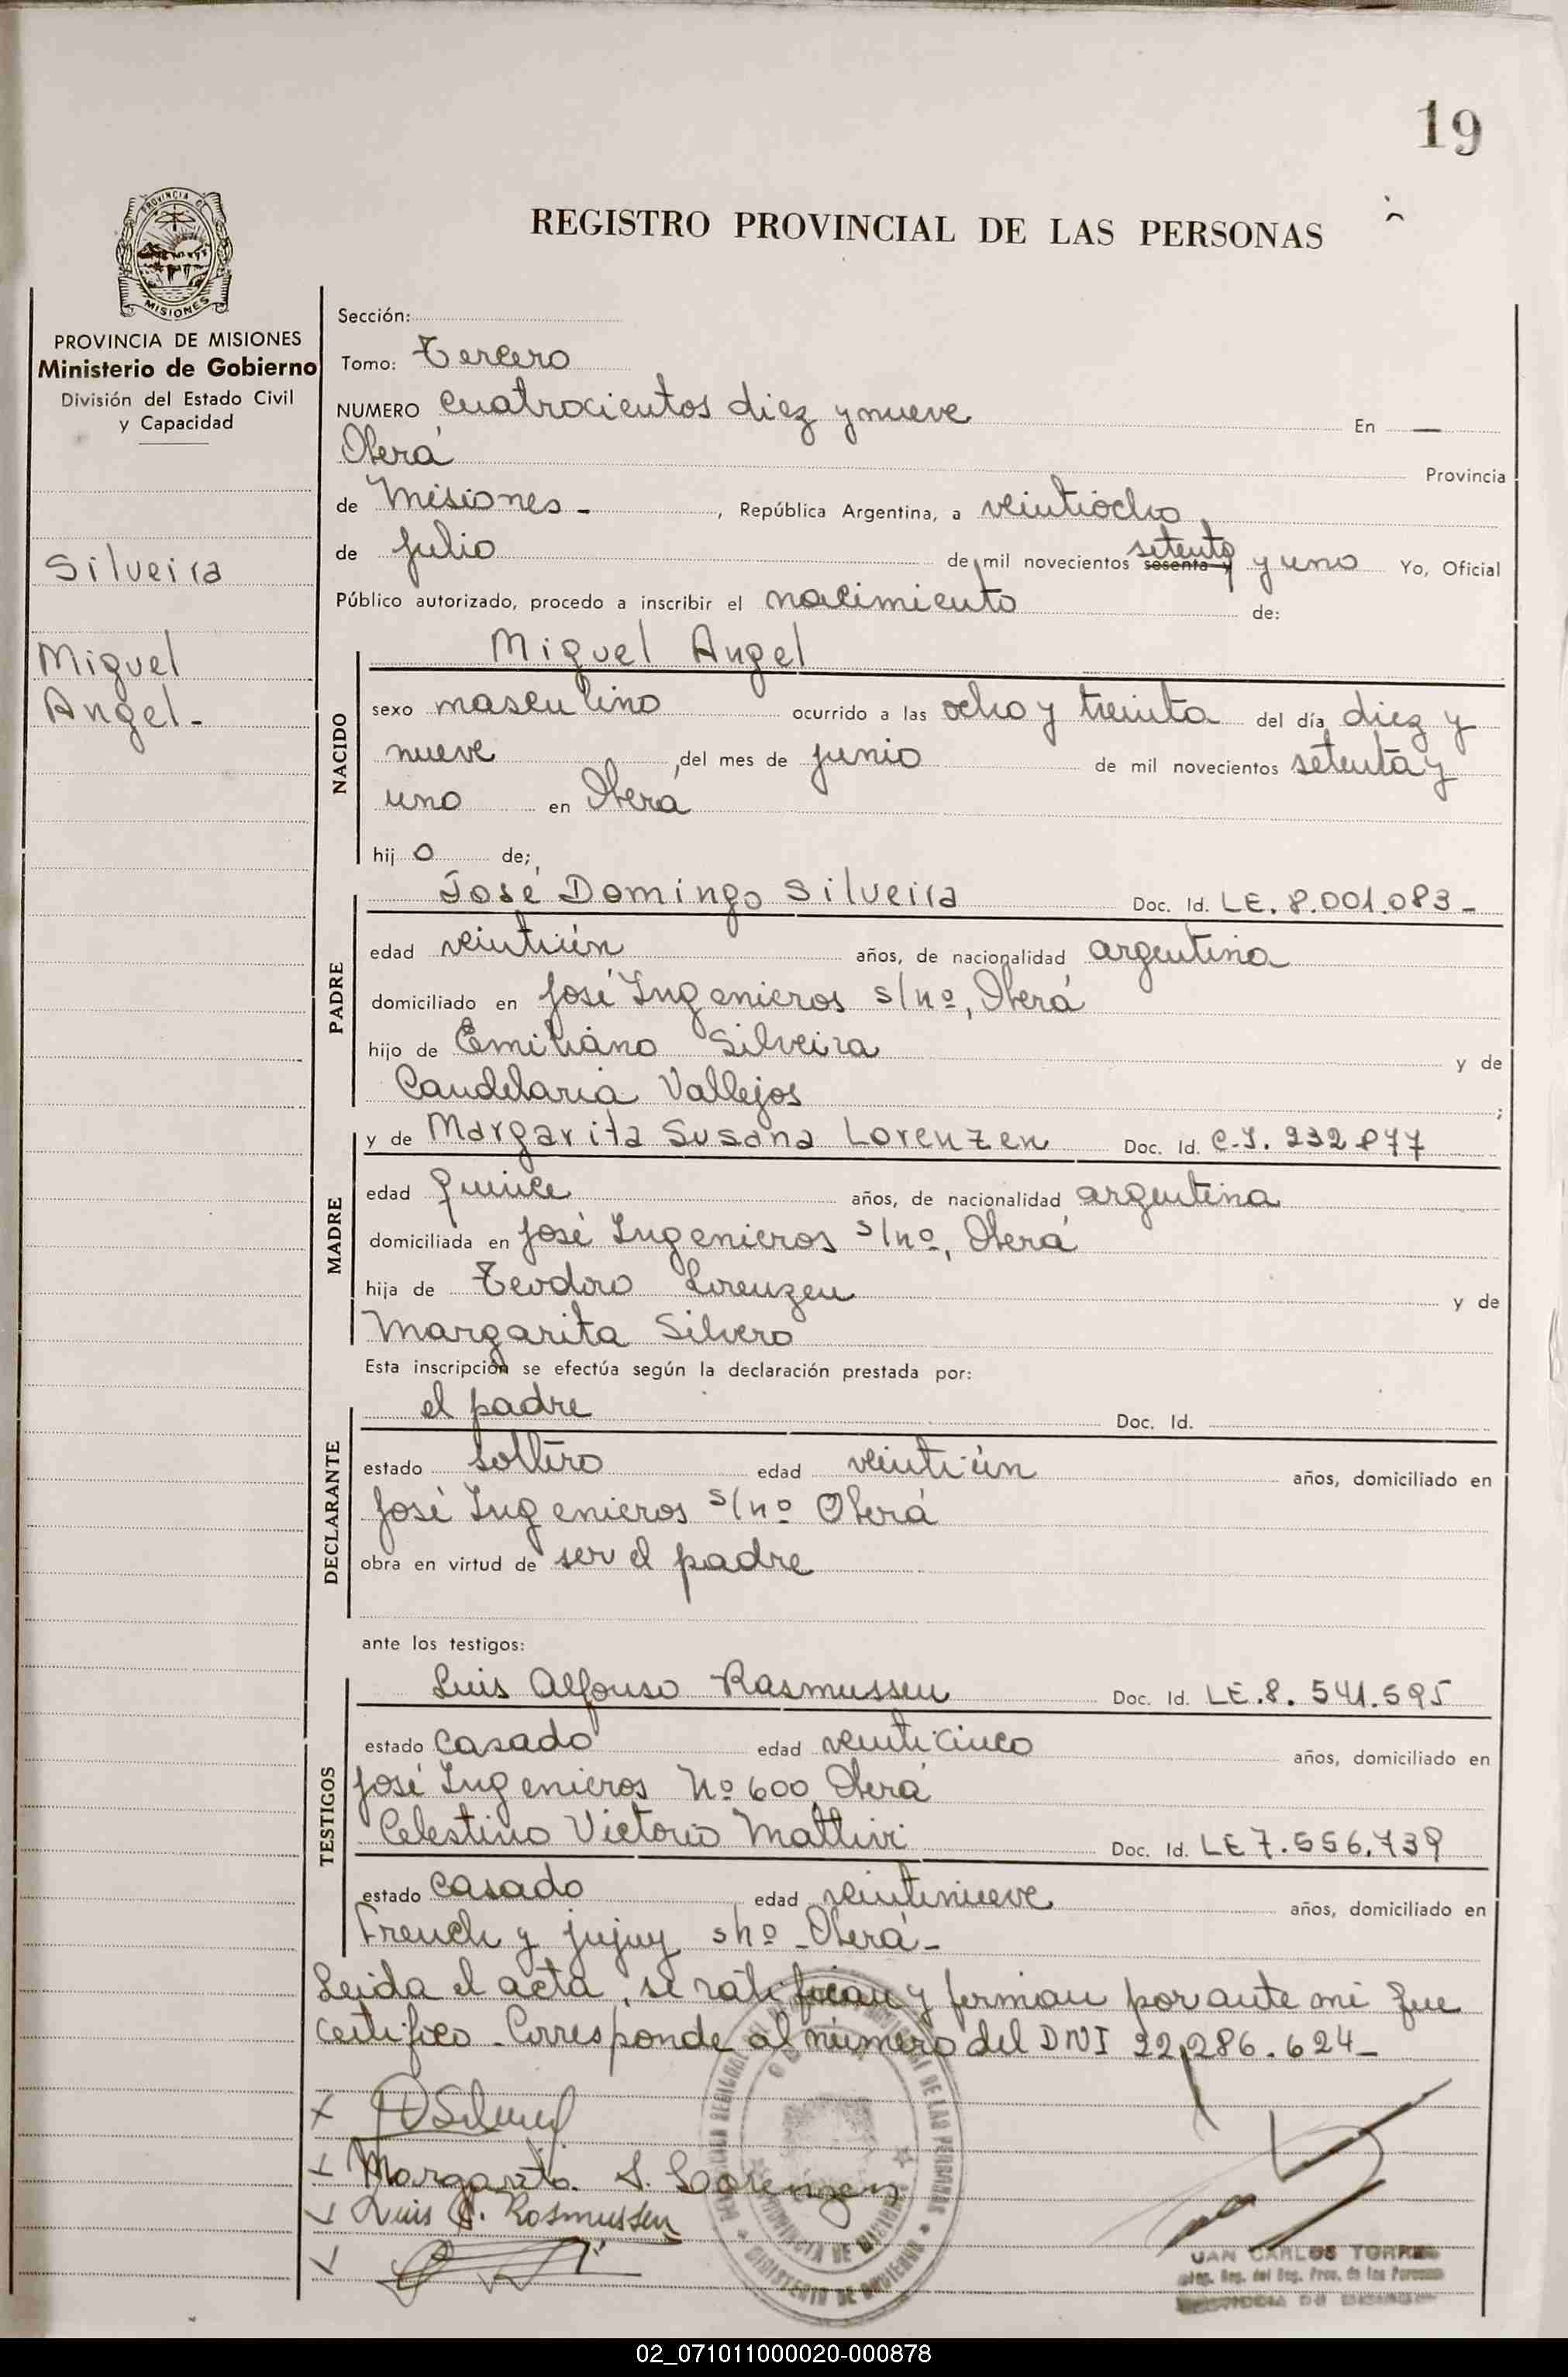 19
REGISTRO PROVINCIAL DE LAS PERSONAS
PROVINCIA DE MISIONES
Ministerio de Gobierno
División del Estado Civil
y Capacidad
Silveira
Miguel
Angel-
Sección:
Tomo: Tercero
NUMERO cuatrocientos diez y nueve En —
Oberá Provincia
de Misiones - , República Argentina, a veintiocho
de julio de mil novecientos sesenta y setenta y uno Yo, Oficial
Público autorizado, procedo a inscribir el nacimiento de:
NACIDO
Miguel Angel
sexo masculino ocurrido a las ocho y treinta del día diez y
nueve del mes de junio de mil novecientos setenta y
uno en Oberá
hij o de;
PADRE
José Domingo Silveira Doc. Id. LE. 8.001.083-
edad veintiún años, de nacionalidad argentina
domiciliado en José Ingenieros s/nº, Oberá
hijo de Emiliano Silveira y de
Candelaria Vallejos ;
MADRE
y de Margarita Susana Lorenzen Doc. Id. C.I. 232.877
edad quince años, de nacionalidad argentina
domiciliada en José Ingenieros s/nº, Oberá
hija de Teodoro Lorenzen y de
Margarita Silvero
Esta inscripción se efectúa según la declaración prestada por:
DECLARANTE
el padre Doc. Id.
estado soltero edad veintiún años, domiciliado en
José Ingenieros s/nº Oberá
obra en virtud de ser el padre
ante los testigos:
TESTIGOS
Luis Alfonso Rasmussen Doc. Id. LE.8.541.595
estado casado edad veinticinco años, domiciliado en
José Ingenieros Nº 600 Oberá
Celestino Victorio Mattivi Doc. Id. LE 7.556.739
estado casado edad veintinueve años, domiciliado en
French y jujuy s/nº - Oberá-
Leida el acta, se ratifican y firman por ante mi que
certifico - Corresponde al número del DNI 22.286.624-
Margarita S. Lorenzen
Luis A. Rasmussen
MINISTERIO DE GOBIERNO
PROVINCIA DE MISIONES
JUAN CARLOS TORRES
02_071011000020-000878